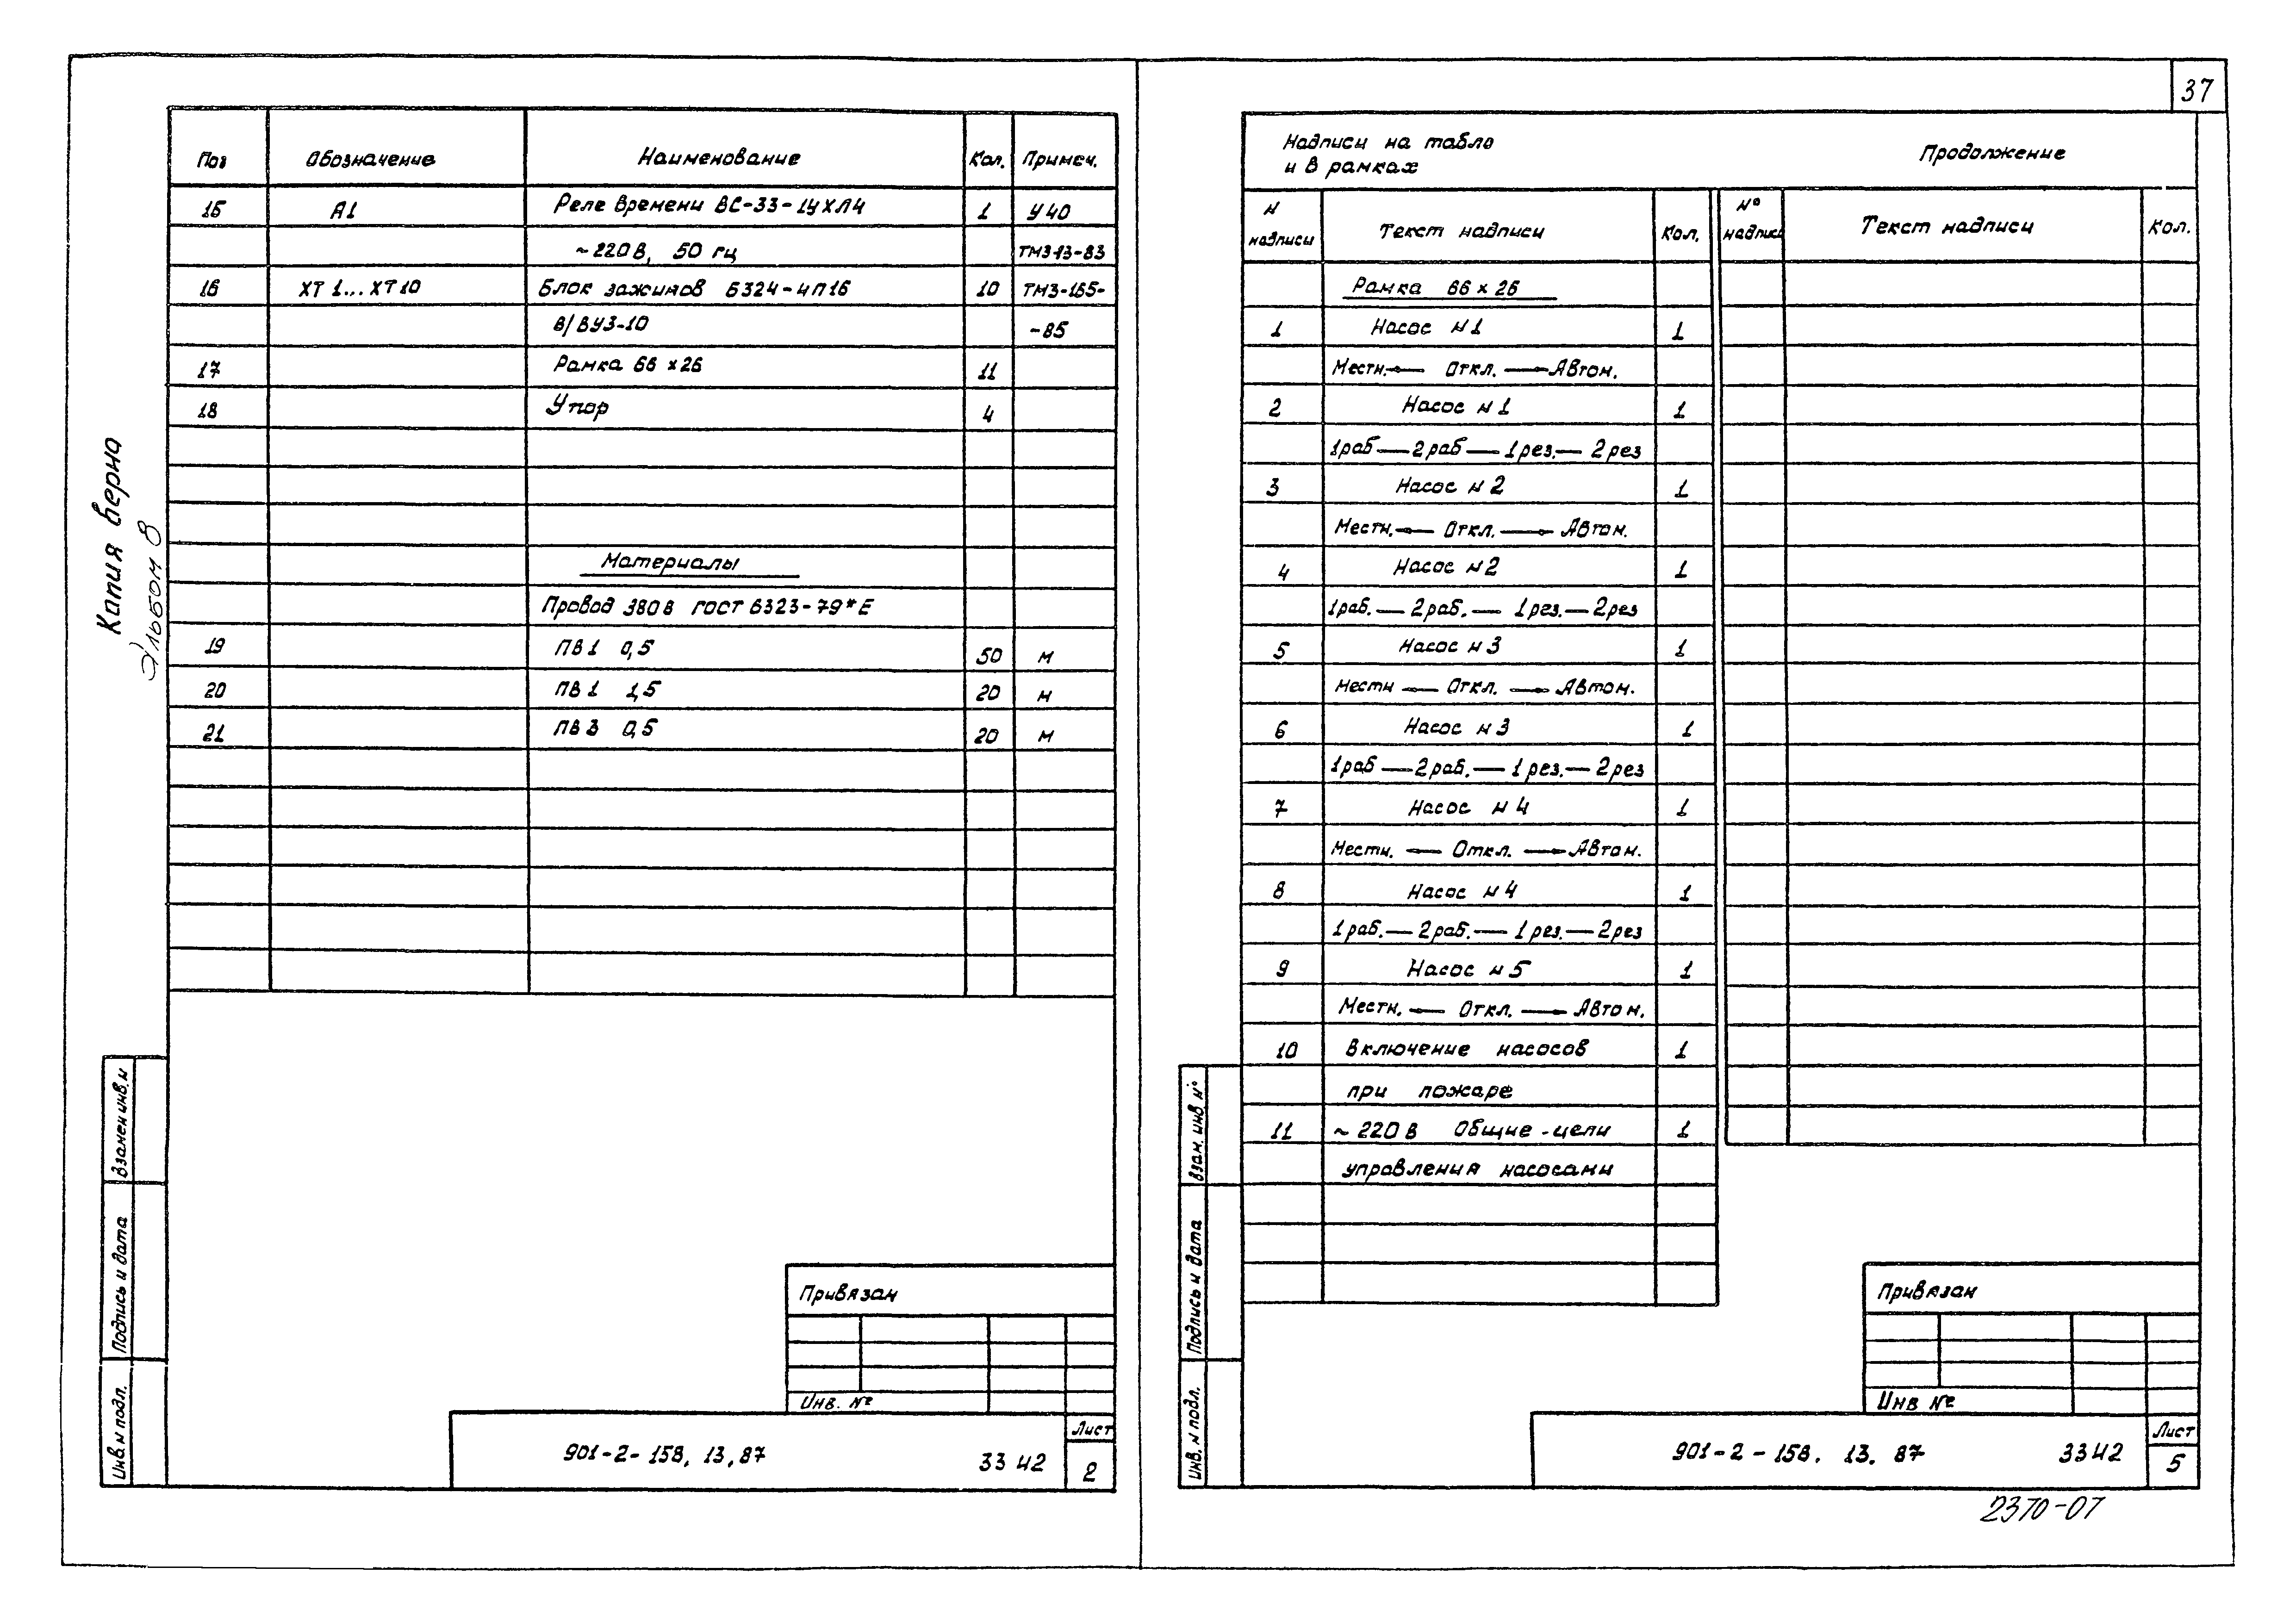 37
Копия верна
Альбом 8
Поз Обозначение Наименование Кол. Примеч.
15 А1 Реле времени ВС-33-1УХЛ4 1 У40
~220В, 50 гц ТМ3-13-83
16 ХТ1...ХТ10 Блок зажимов Б324-4П16 10 ТМ3-165-
В/ВУ3-10 -85
17 Рамка 66х26 11
18 Упор 4
Материалы
Провод 380В ГОСТ 6323-79*Е
19 ПВ1 0,5 50 м
20 ПВ1 1,5 20 м
21 ПВ3 0,5 20 м
Взамен инв.N
Подпись и дата
Инв.N подл.
Привязан
Инв. №
901-2-158.13.87 33 42
Лист
2
Надписи на табло
и в рамках
Продолжение
N надписи Текст надписи Кол. № надписи Текст надписи Кол.
Рамка 66х26
1 Насос N1 1
Местн.← Откл. →Автом.
2 Насос N1 1
1раб—2раб—1рез.—2рез
3 Насос N2 1
Местн.← Откл. → Автом.
4 Насос N2 1
1раб.—2раб.—1рез.—2рез
5 Насос N3 1
Местн ← Откл. → Автом.
6 Насос N3 1
1раб—2раб.—1рез.—2рез
7 Насос N4 1
Местн. ← Откл. → Автом.
8 Насос N4 1
1раб.—2раб.—1рез.—2рез
9 Насос N5 1
Местн. ← Откл. → Автом.
10 Включение насосов 1
при пожаре
11 ~220В Общие цепи 1
управления насосами
Взам. инв. №
Подпись и дата
Инв. N подл.
Привязан
Инв №
901-2-158.13.87 3342
Лист
5
2370-07